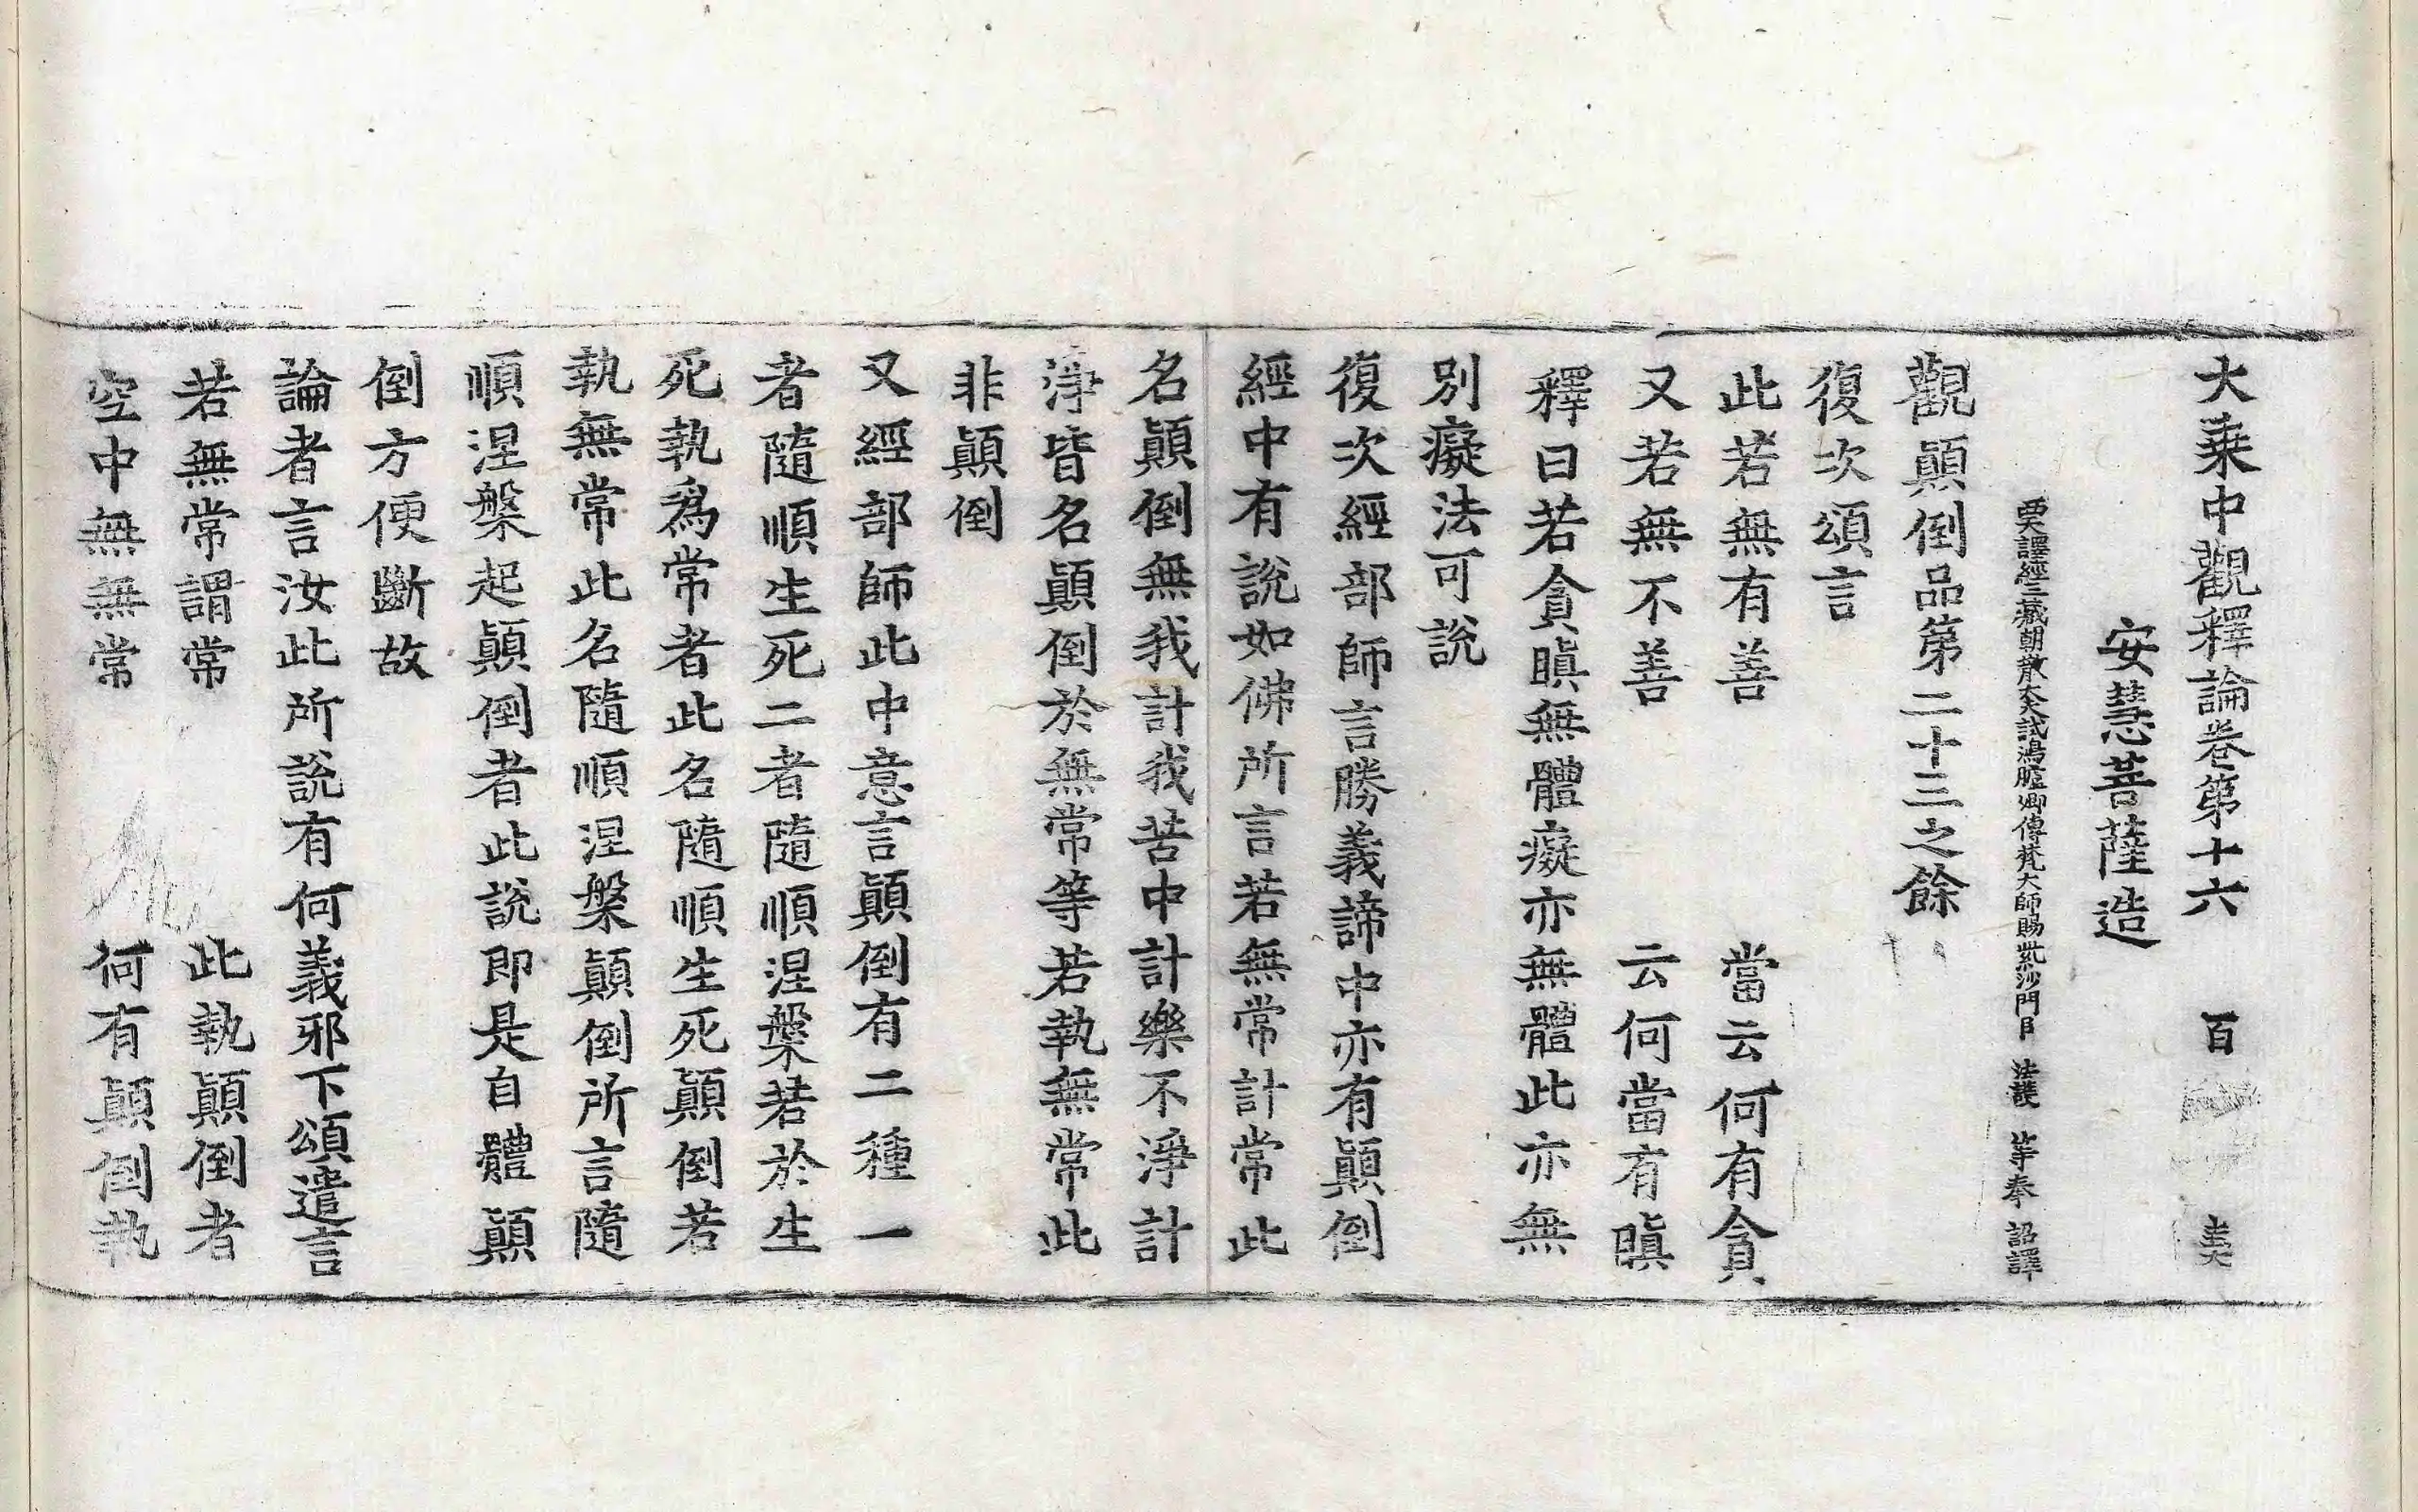 大乘中觀釋論卷第十六 百
安慧菩薩造
西天譯經三藏朝散大夫試鴻臚卿傳梵大師賜紫沙門臣 法護 等奉 詔譯
觀顚倒品第二十三之餘
復次頌言
此若無有善 當云何有貪
又若無不善 云何當有瞋
釋曰若貪瞋無體癡亦無體此亦無
別癡法可說
復次經部師言勝義諦中亦有顚倒
經中有說如佛所言若無常計常此
名顚倒無我計我苦中計樂不淨計
淨皆名顚倒於無常等若執無常此
非顚倒
又經部師此中意言顚倒有二種一
者隨順生死二者隨順涅槃若於生
死執爲常者此名隨順生死顚倒若
執無常此名隨順涅槃顚倒所言隨
順涅槃起顚倒者此說即是自體顚
倒方便斷故
論者言汝此所說有何義邪下頌遣言
若無常謂常 此執顚倒者
空中無無常 何有顚倒執